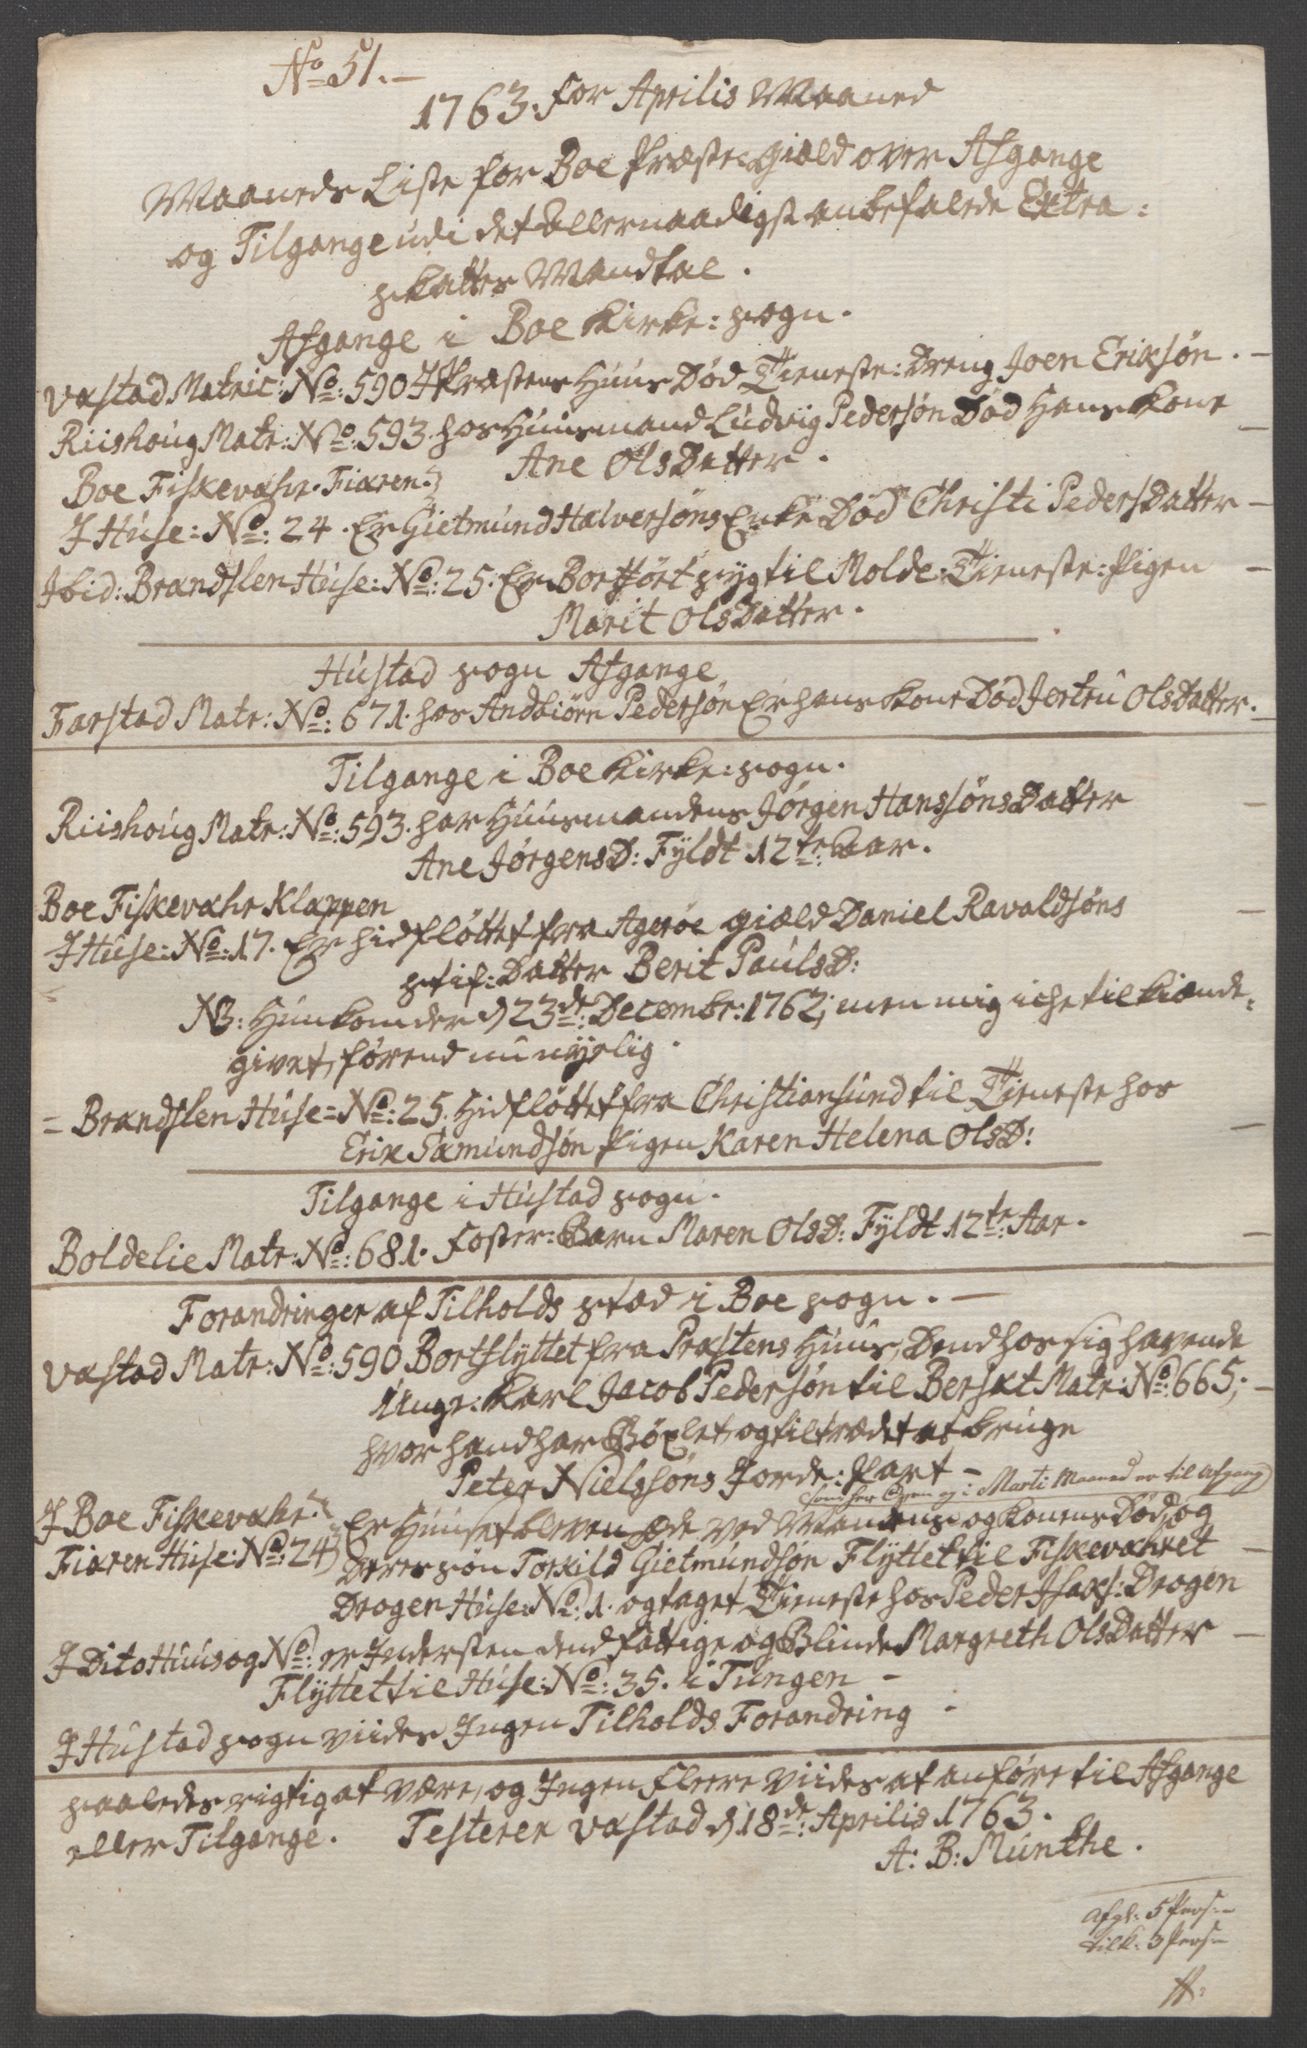 No 51.
1763. for Aprilis Maaned
Maaneds Liste for Boe Præste-Giæld over Afgange
og Tilgange udi det Allernaadigst anbefalede Extra:
skatts Mandtal.
Afgange i Boe Kirke: sogn.
Vastad Matric: No: 590 I Præstens Huus Død Tieneste: Dreng Joen Eriksøn.
Riishoug Matr: No: 593. hos Huusmand Ludvig Pedersøn Død Hans Kone
Ane OlsDatter.
Boe Fiskevæhr. Fiæren.
I Huse: No: 24. Er Gietmund Halversøns Enke Død Christi PedersDatter
Ibid: Brandslen Huse: No: 25. Er Bortført syg til Molde. Tieneste: Pigen
Marit OlsDatter.
Hustad sogn Afgange
Farstad Matr: No: 671. hos Andbiørn Pedersøn Er hans Kone Død Jertru OlsDatter.
Tilgange i Boe Kirke: sogn.
Riishoug Matr: No: 593. har Huusmandens Jørgen Hansøns Datter
Ane JørgensD: Fyldt 12te: Aar.
Boe Fiskevæhr Klappen
I Huse: No: 17. Er hidfløttet fra Agerøe giæld Daniel Ravaldsøns
stif: Datter Berit PaulsD:
NB: Hun kom der d 23de: Decembr: 1762; men mig iche tilkiende-
givet, førend nu nyelig.
= Brandslen Huse= No: 25. Hidfløttet fra Christiansund til Tieneste hos
Erik Sæmundsøn Pigen Karen Helena OlsD:
Tilgange i Hustad sogn.
Boldelie Matr: No: 681. Foster: Barn Maren OlsD: Fyldt 12te: Aar.
Forandringer af Tilholds stæd i Boe sogn.
Vastad Matr: No: 590 Bortflyttet fra Præstens Huus, Dend hos sig havende
Unge: Karl Jacob Pedersøn til Berset Matr: No: 665;
hvor hand har Bøxlet, og tiltrædet at bruge
Peter Nielssøns Jorde: Part
som her Oven og i Marti Maaned er til Afgang
I Boe Fiskevæhr. Er Huuset bleven Øde ved Mandens og Konens Død, og
Fiæren Huse: No: 24 Deres søn Torkild Gietmundsøn Flyttet til Fiskevæhret
Drogen Huse: No: 1. og taget Tieneste hos Peder Isaks: Drogen
I Dito Huus og No: er Indersten dend fattige og Blinde Margreth OlsDatter
Flyttet til Huse: No: 35. i Tungen
I Hustad sogn viides Ingen Tilholds Forandring
saaledes rigtig at være, og Ingen Fleere viides at anføre til Afgange
eller Tilgange. Testerer Vastad d 18de: Aprilis 1763.
A: B: Munthe.
Afg: 5 Pers:
tilk: 3 Pers